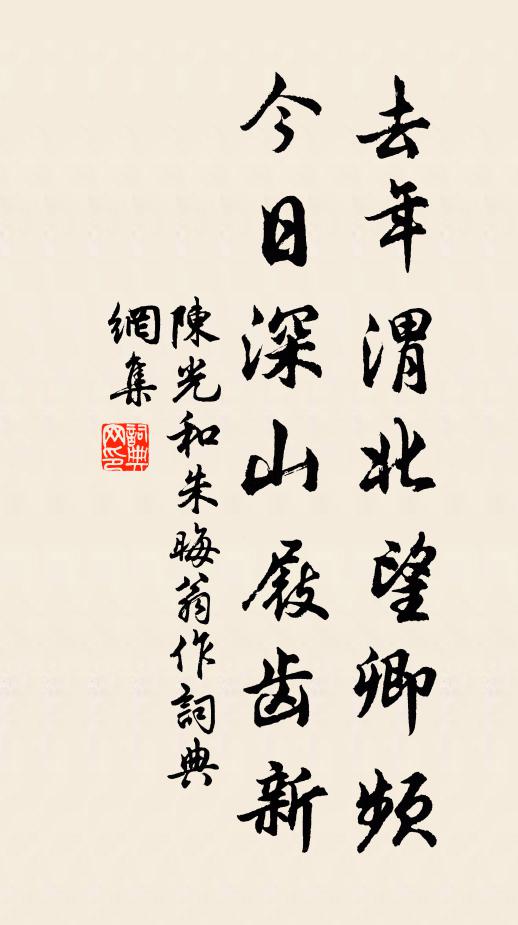 去年渭北望卿頻
今日深山屐齿新
陳光和朱晦翁作詞典
網集
詞典
网印